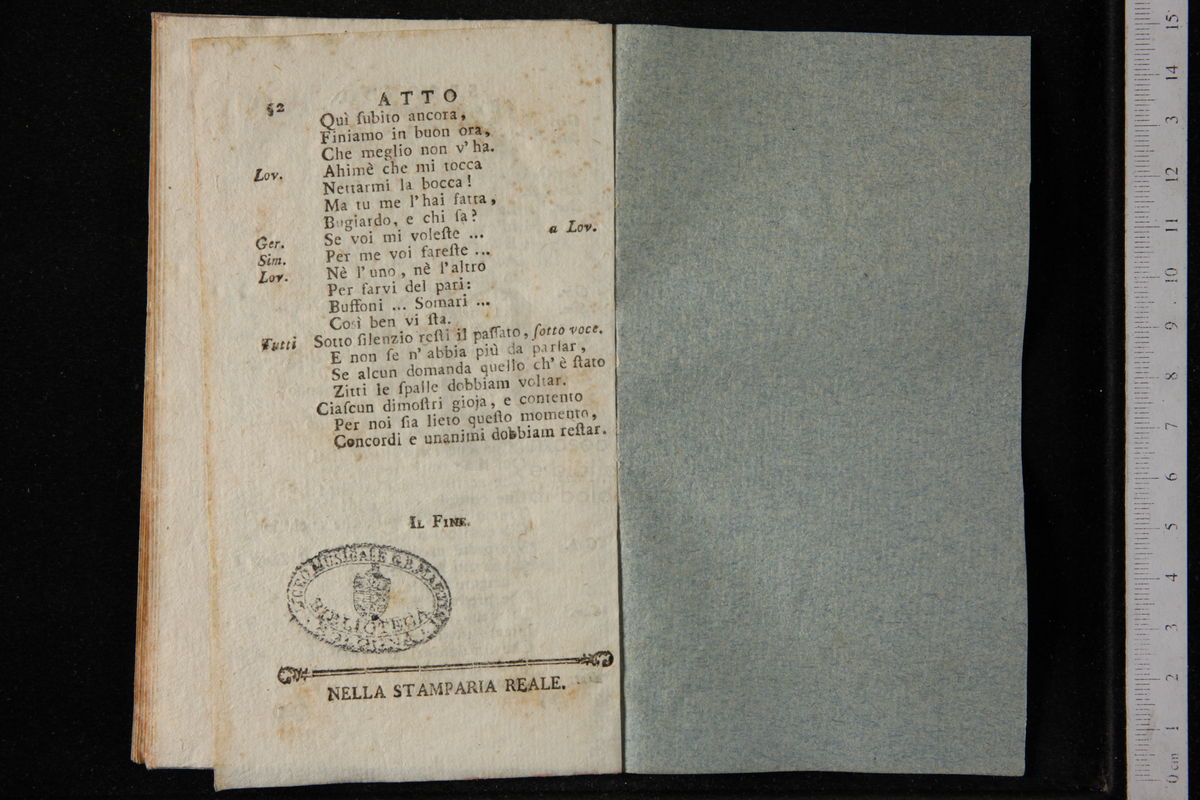 52 ATTO
Quì ſubito ancora,
Finiamo in buon ora,
Che meglio non v'ha.
Lov. Ahimè che mi tocca
Nettarmi la bocca!
Ma tu me l'hai fatta,
Bugiardo, e chi ſa?
Ger. Se voi mi voleſte ... a Lov.
Sim. Per me voi fareſte ...
Lov. Nè l'uno, nè l'altro
Per farvi del pari:
Buffoni ... Somari ...
Così ben vi ſta.
Tutti Sotto ſilenzio reſti il paſſato, ſotto voce.
E non ſe n'abbia più da parlar,
Se alcun domanda quello ch'è ſtato
Zitti le ſpalle dobbiam voltar.
Ciaſcun dimoſtri gioja, e contento
Per noi ſia lieto queſto momento,
Concordi e unanimi dobbiam reſtar.
IL FINE.
LICEO MUSICALE G.B. MARTINI
BIBLIOTECA
NELLA STAMPARIA REALE.
0 cm 1 2 3 4 5 6 7 8 9 10 11 12 3 14 15